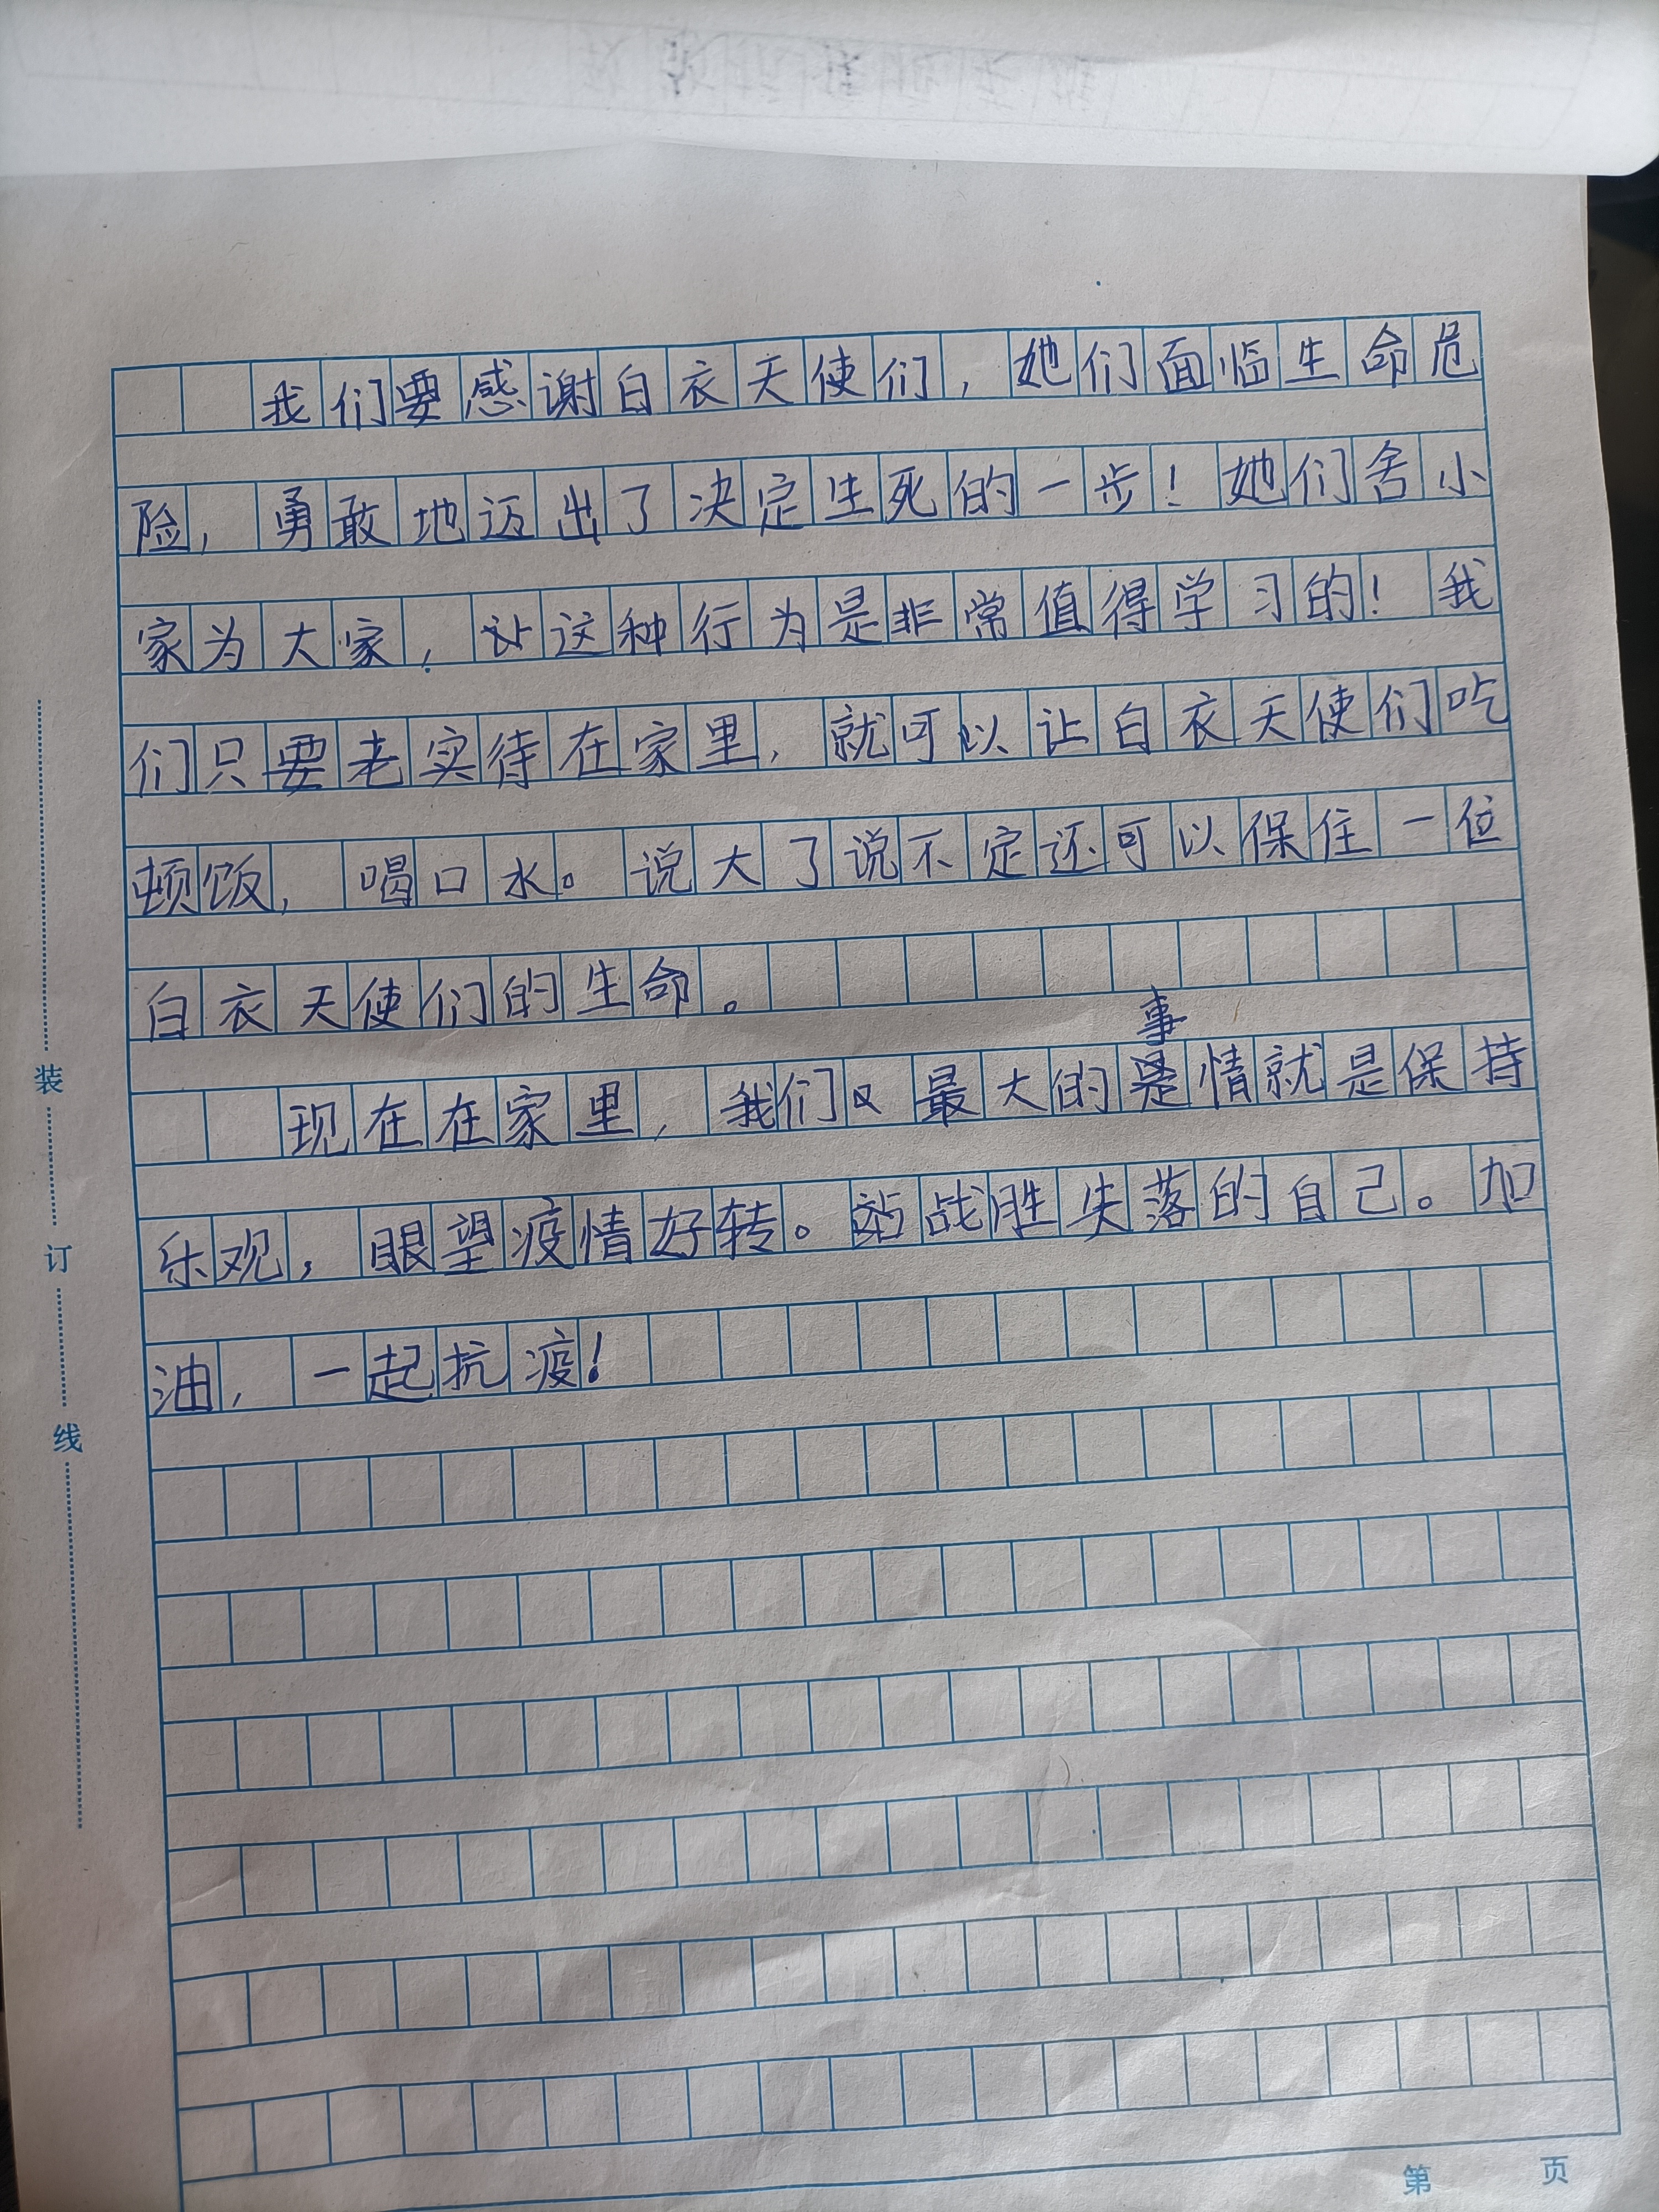 我们要感谢白衣天使们,她们面临生命危
险,勇敢地迈出了决定生死的一步!她们舍小
家为大家,这种行为是非常值得学习的!我
们只要老实待在家里,就可以让白衣天使们吃
顿饭,喝口水。说大了说不定还可以保住一位
白衣天使们的生命。
事
现在在家里,我们最大的情就是保持
乐观,眼望疫情好转。战胜失落的自己。加
油,一起抗疫!
装
订
线
第 页